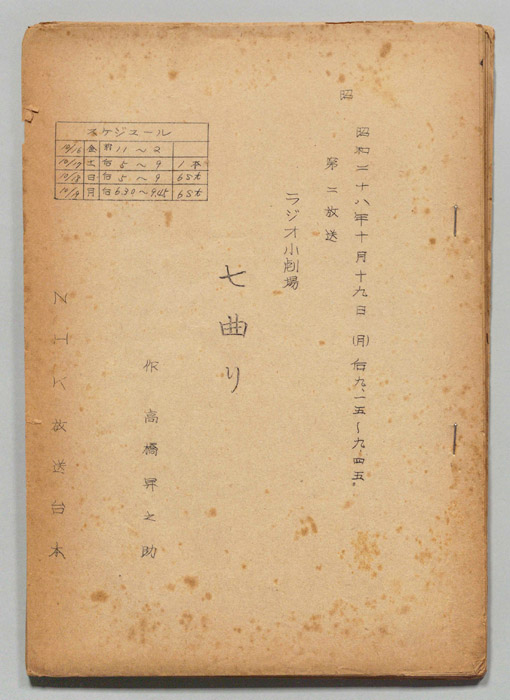 昭
昭和二十八年十月十九日(月)后九、一五〜九、四五
第二放送
ラジオ小劇場
七曲り
作 高橋昇之助
スケジュール
10/16 金 前 11〜2
10/17 土 后 5〜9
10/18 日 后 5〜9 6St
10/19 月 后 6.30〜9.45 6St
NHK放送台本